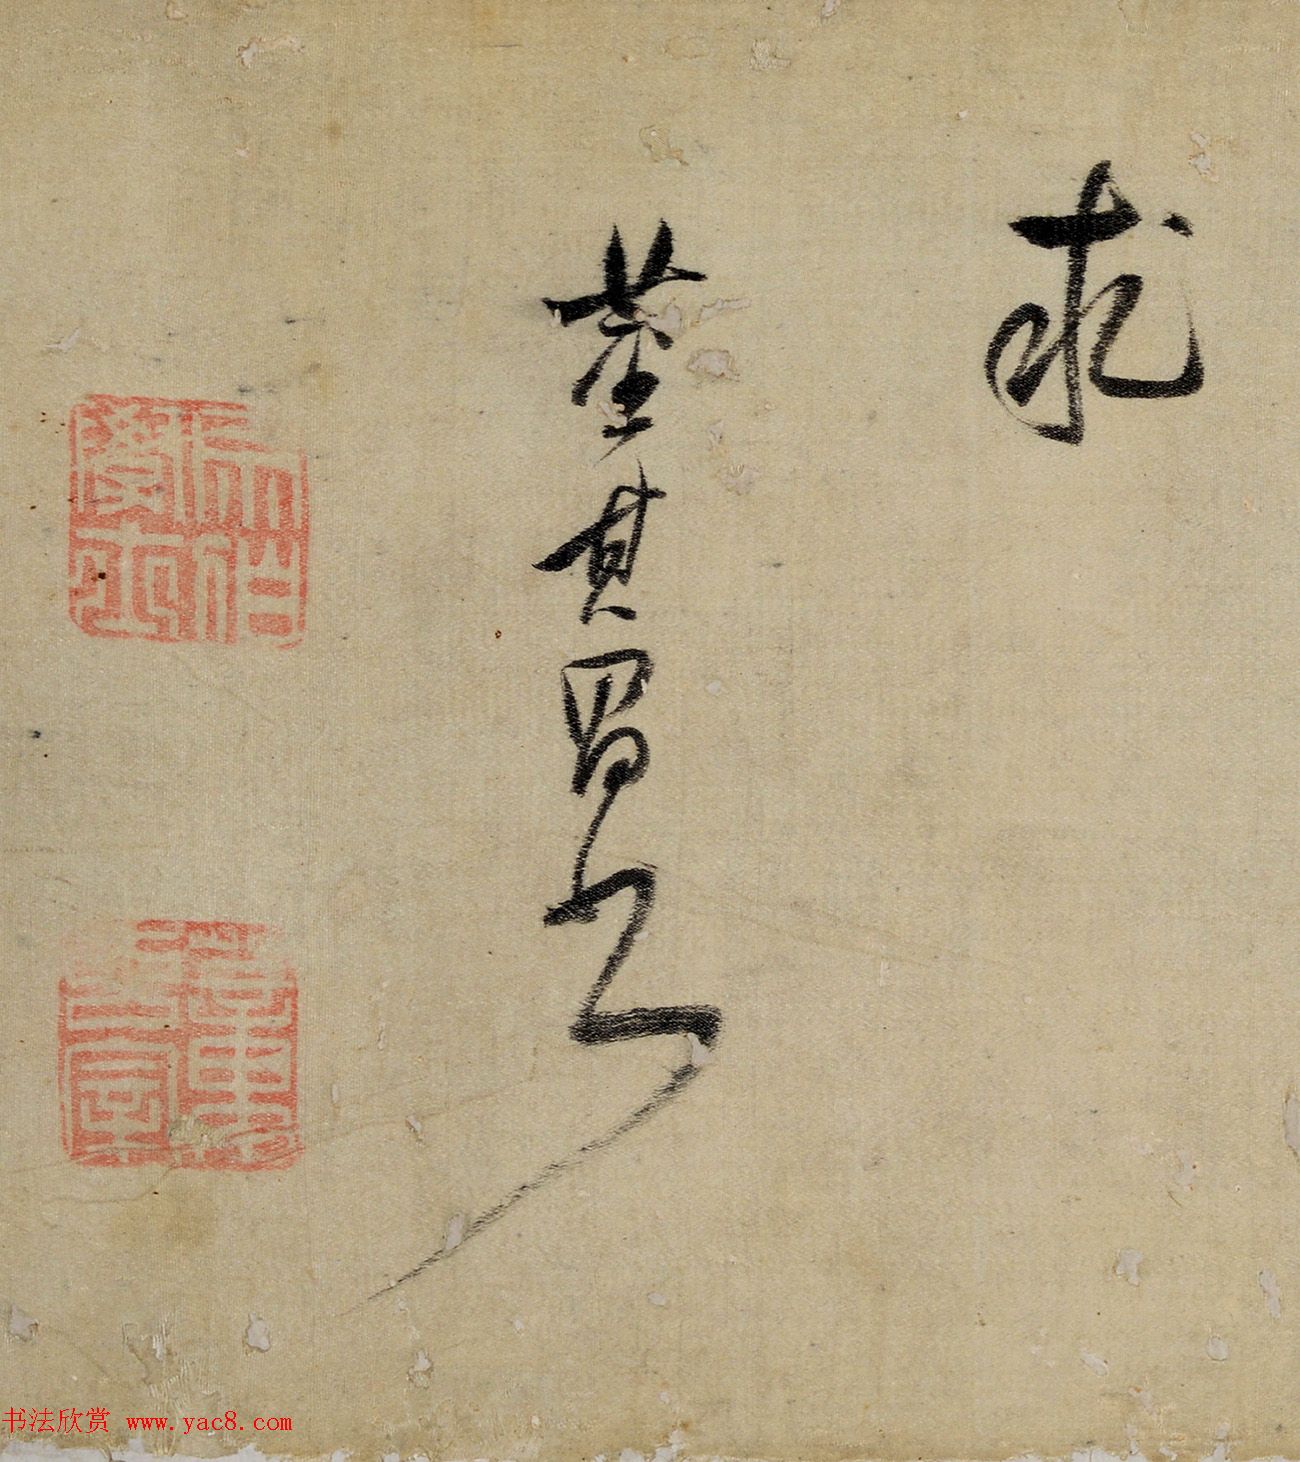 求
董其昌書
书法欣赏 www.yac8.com